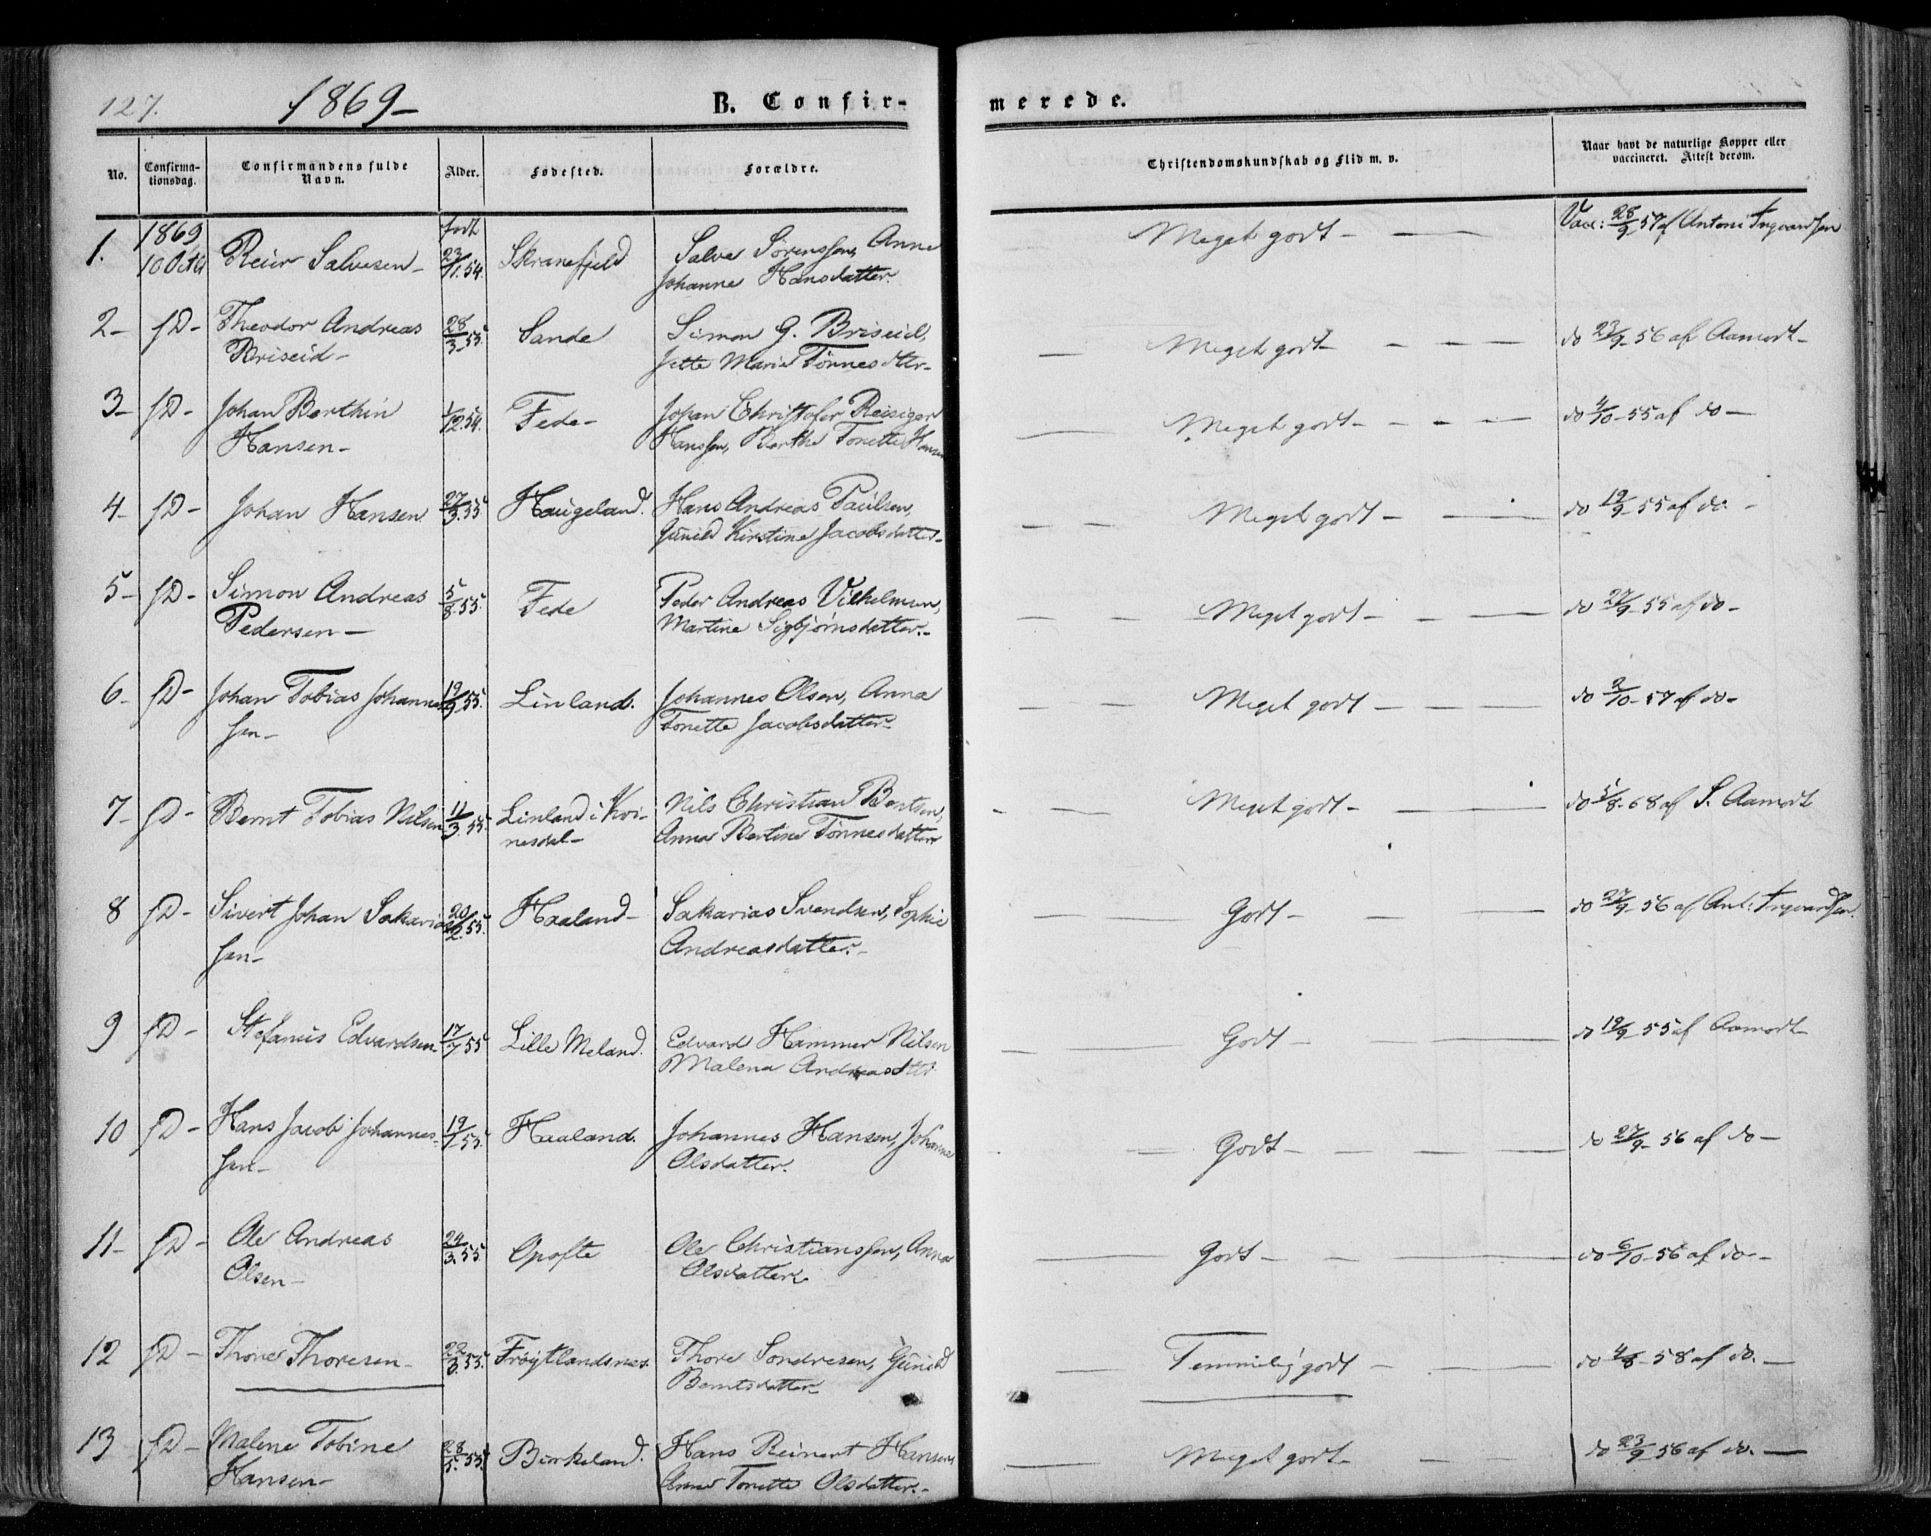 127.
1869-
B. Confir-
merede.
No.
Confirma-
tionsdag.
Confirmandens fulde
Navn.
Alder.
Fødested.
Forældre.
Christendomskundskab og Flid m. v.
Naar havt de naturlige Kopper eller
vaccineret. Attest derom.
1869 født
1. 10 Octb Reier Salvesen- 23/11.54. Skranefjeld Salve Sørenssen, Anne Meget godt - Vacc: 28/9-57 af Antoni Ingvardsen
Johanne Hansdatter.
2- D- Theodor Andreas 28/3-55 Sande Simon G. Briseid, Meget godt - do 23/9-56 af Aamodt-
Briseid- Jette Marie Tønnesdtter-
3- D- Johan Berthin 1/12.54. Fede- Johan Christofer Reisiger Meget godt - do 4/10-55 af do-
Hansen- Hanssen, Berthe Tonette Hansen
4- D- Johan Hansen 27/3.55 Haugeland. Hans Andreas Paulsen, Meget godt - do 19/9-55 af do.
Gunild Kirstine Jacobsdatter-
5- D- Simon Andreas 5/8.55. Fede Peder Andreas Vilhelmsen, Meget godt - do 27/9-55 af do-
Pedersen- Martine Sigbjørnsdatter.-
6- D- Johan Tobias Johannes 19/9.55. Linland. Johannes Olsen, Anna Meget godt - do 2/10-57 af do-
sen- Tonette Jacobsdatter-
7- D- Bernt Tobias Nilsen 11/3.55. Linland i Kvi- Nils Christian Bentsen, Meget godt - do 5/8-68 af S. Aamodt
nesdal- Anna Bertine Tønnesdatter
8 D- Sivert Johan Sakarias 20/2.55. Haaland- Sakarias Svendsen, Sophie Godt - do 27/9-56 af Ant: Ingvardsen.
sen- Andreasdatter.-
9 D- Stefanus Edvardsen 17/7.55 Lille Meland. Edvard Hammer Nilsen Godt - do 19/9-55 af Aamodt-
Malena Andreasdtter
10 D- Hans Jacob Johannes- 19/1-55. Haaland. Johannes Hansen, Johanne Godt - do 27/9-56 af do-
sen- Olsdatter.
11- D- Ole Andreas 24/3.55. Opofte Ole Christianssen, Anna Godt - do 6/10-56 af do-
Olsen- Olsdatter
12 D- Thore Thoresen- 22/3.55. Frøytlandsnes. Thore Sondresen, Gunild Temmelig godt - do 4/8-58 af do.-
Berntsdatter-
13 D- Malene Tobine 28/5.55. Birkeland. Hans Reinert Hansen, Meget godt - do 23/9-56 af do.-
Hansen- Anne Tonette Olsdatter.-